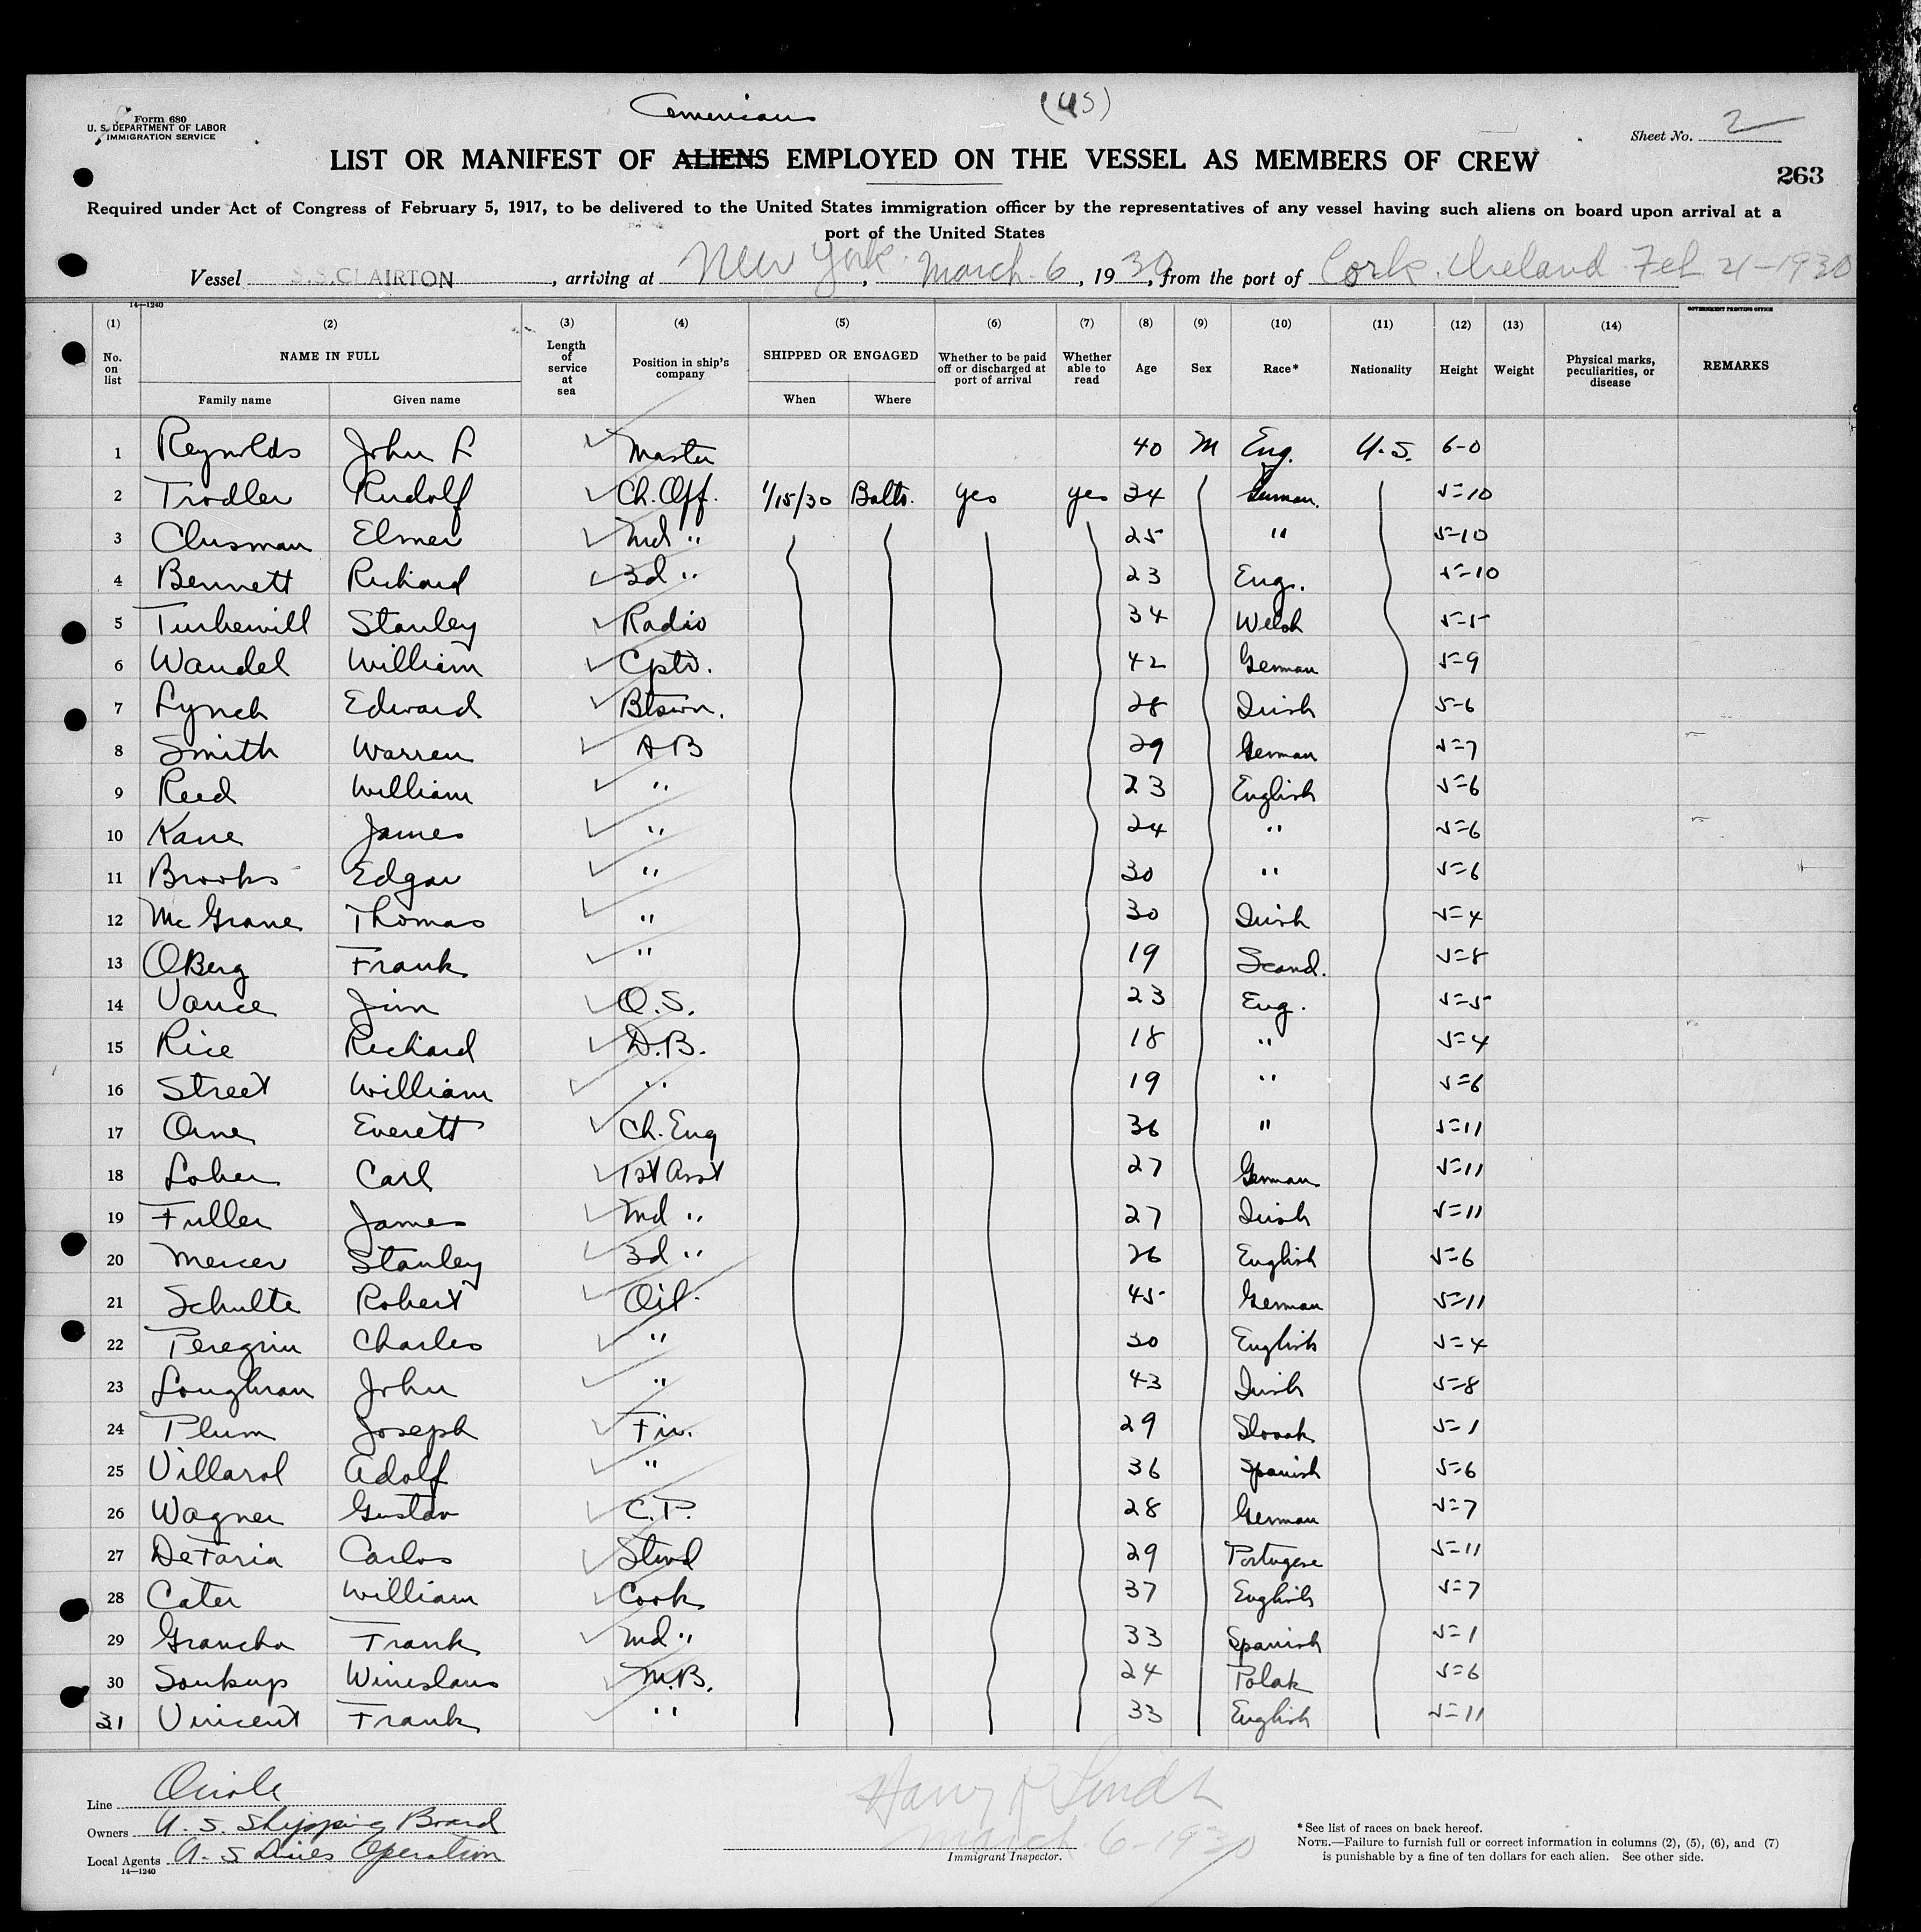 Form 680
U. S. DEPARTMENT OF LABOR
IMMIGRATION SERVICE
American (US)
Sheet No. 2
LIST OR MANIFEST OF ALIENS EMPLOYED ON THE VESSEL AS MEMBERS OF CREW
263
Required under Act of Congress of February 5, 1917, to be delivered to the United States immigration officer by the representatives of any vessel having such aliens on board upon arrival at a
port of the United States
Vessel S.S. CLAIRTON, arriving at New York, March 6, 1930, from the port of Cork. Ireland Feb 21-1930
14—1240 GOVERNMENT PRINTING OFFICE
(1) (2) (3) (4) (5) (6) (7) (8) (9) (10) (11) (12) (13) (14)
No. on list NAME IN FULL Length of service at sea Position in ship's company SHIPPED OR ENGAGED Whether to be paid off or discharged at port of arrival Whether able to read Age Sex Race* Nationality Height Weight Physical marks, peculiarities, or disease REMARKS
Family name Given name When Where
1 Reynolds John L Master 40 M Eng. U.S. 6-0
2 Trodler Rudolf Ch. Off. 1/15/30 Balto. yes yes 34 German. 5-10
3 Clusman Elmer 2nd " 25 " 5-10
4 Bennett Richard 3d " 23 Eng. 5-10
5 Stanley Radio 34 Welsh 5-5
6 Wandel William Cptr. 42 German 5-9
7 Lynch Edward Btswn. 28 Irish 5-6
8 Smith Warren AB 29 German 5-7
9 Reed William " 23 English 5-6
10 Kane James " 24 " 5-6
11 Brooks Edgar " 30 " 5-6
12 McGrane Thomas " 30 Irish 5-4
13 OBerg Frank " 19 Scand. 5-8
14 Vance Jim O.S. 23 Eng. 5-5
15 Rice Richard D.B. 18 " 5-4
16 Street William " 19 " 5-6
17 Orne Everett Ch. Eng 36 " 5-11
18 Loher Carl 1st Asst 27 German 5-11
19 Fuller James 2nd " 27 Irish 5-11
20 Mercer Stanley 3d " 26 English 5-6
21 Schulte Robert Oil. 45 German 5-11
22 Peregrin Charles " 30 English 5-4
23 Loughran John " 43 Irish 5-8
24 Plum Joseph Fir. 29 Slovak 5-1
25 Villarol Adolf " 36 Spanish 5-6
26 Wagner Gustav C.P. 28 German 5-7
27 DeFaria Carlos Stwd 29 Portugese 5-11
28 Cater William Cook 37 English 5-7
29 Grancha Frank 2nd " 33 Spanish 5-1
30 Soukup Wineslaus M.B. 24 Polak 5-6
31 Vincent Frank " 33 English 5-11
Line Oriole
Owners U. S. Shipping Board
Local Agents U. S Lines Operation
14—1240
March 6-1930
Immigrant Inspector.
*See list of races on back hereof.
NOTE.—Failure to furnish full or correct information in columns (2), (5), (6), and (7)
is punishable by a fine of ten dollars for each alien. See other side.